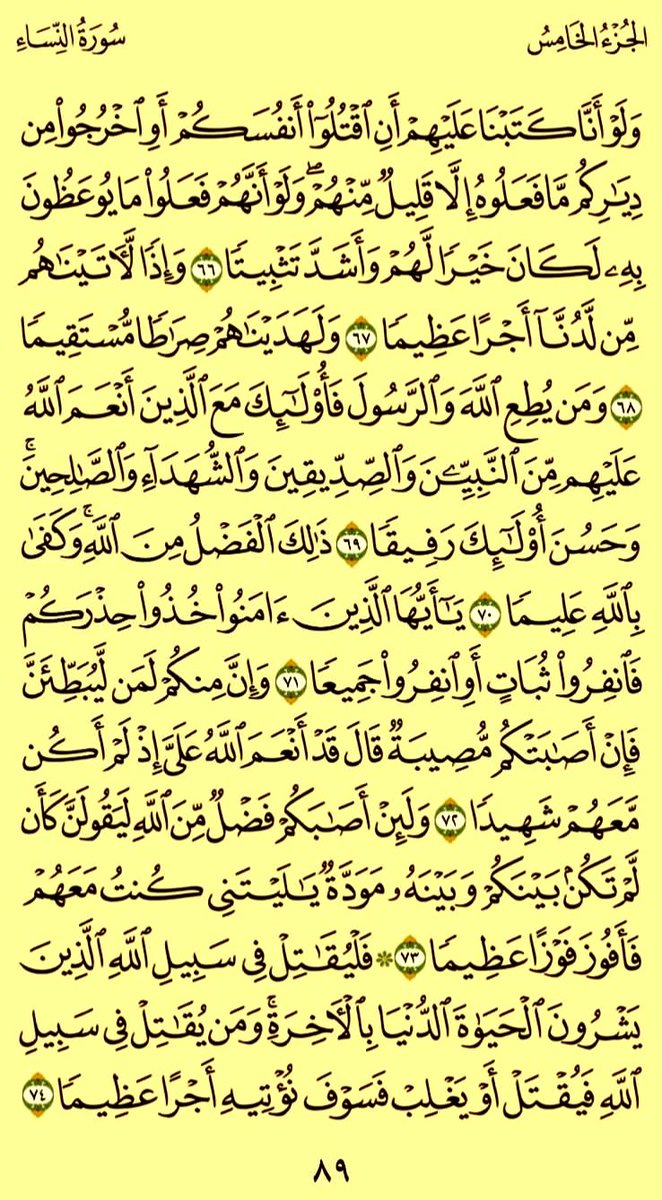 الجُزْءُ الخَامِسُ سُورَةُ النِّسَاءِ
وَلَوْ أَنَّا كَتَبْنَا عَلَيْهِمْ أَنِ ٱقْتُلُوٓا۟ أَنفُسَكُمْ أَوِ ٱخْرُجُوا۟ مِن
دِيَـٰرِكُم مَّا فَعَلُوهُ إِلَّا قَلِيلٌ مِّنْهُمْ ۖ وَلَوْ أَنَّهُمْ فَعَلُوا۟ مَا يُوعَظُونَ
بِهِۦ لَكَانَ خَيْرًا لَّهُمْ وَأَشَدَّ تَثْبِيتًا ٦٦ وَإِذًا لَّـَٔاتَيْنَـٰهُم
مِّن لَّدُنَّآ أَجْرًا عَظِيمًا ٦٧ وَلَهَدَيْنَـٰهُمْ صِرَٰطًا مُّسْتَقِيمًا
٦٨ وَمَن يُطِعِ ٱللَّهَ وَٱلرَّسُولَ فَأُو۟لَـٰٓئِكَ مَعَ ٱلَّذِينَ أَنْعَمَ ٱللَّهُ
عَلَيْهِم مِّنَ ٱلنَّبِيِّـۧنَ وَٱلصِّدِّيقِينَ وَٱلشُّهَدَآءِ وَٱلصَّـٰلِحِينَ ۚ
وَحَسُنَ أُو۟لَـٰٓئِكَ رَفِيقًا ٦٩ ذَٰلِكَ ٱلْفَضْلُ مِنَ ٱللَّهِ ۚ وَكَفَىٰ
بِٱللَّهِ عَلِيمًا ٧٠ يَـٰٓأَيُّهَا ٱلَّذِينَ ءَامَنُوا۟ خُذُوا۟ حِذْرَكُمْ
فَٱنفِرُوا۟ ثُبَاتٍ أَوِ ٱنفِرُوا۟ جَمِيعًا ٧١ وَإِنَّ مِنكُمْ لَمَن لَّيُبَطِّئَنَّ
فَإِنْ أَصَـٰبَتْكُم مُّصِيبَةٌ قَالَ قَدْ أَنْعَمَ ٱللَّهُ عَلَىَّ إِذْ لَمْ أَكُن
مَّعَهُمْ شَهِيدًا ٧٢ وَلَئِنْ أَصَـٰبَكُمْ فَضْلٌ مِّنَ ٱللَّهِ لَيَقُولَنَّ كَأَن
لَّمْ تَكُنۢ بَيْنَكُمْ وَبَيْنَهُۥ مَوَدَّةٌ يَـٰلَيْتَنِى كُنتُ مَعَهُمْ
فَأَفُوزَ فَوْزًا عَظِيمًا ٧٣ ۞ فَلْيُقَـٰتِلْ فِى سَبِيلِ ٱللَّهِ ٱلَّذِينَ
يَشْرُونَ ٱلْحَيَوٰةَ ٱلدُّنْيَا بِٱلْـَٔاخِرَةِ ۚ وَمَن يُقَـٰتِلْ فِى سَبِيلِ
ٱللَّهِ فَيُقْتَلْ أَوْ يَغْلِبْ فَسَوْفَ نُؤْتِيهِ أَجْرًا عَظِيمًا ٧٤
٨٩